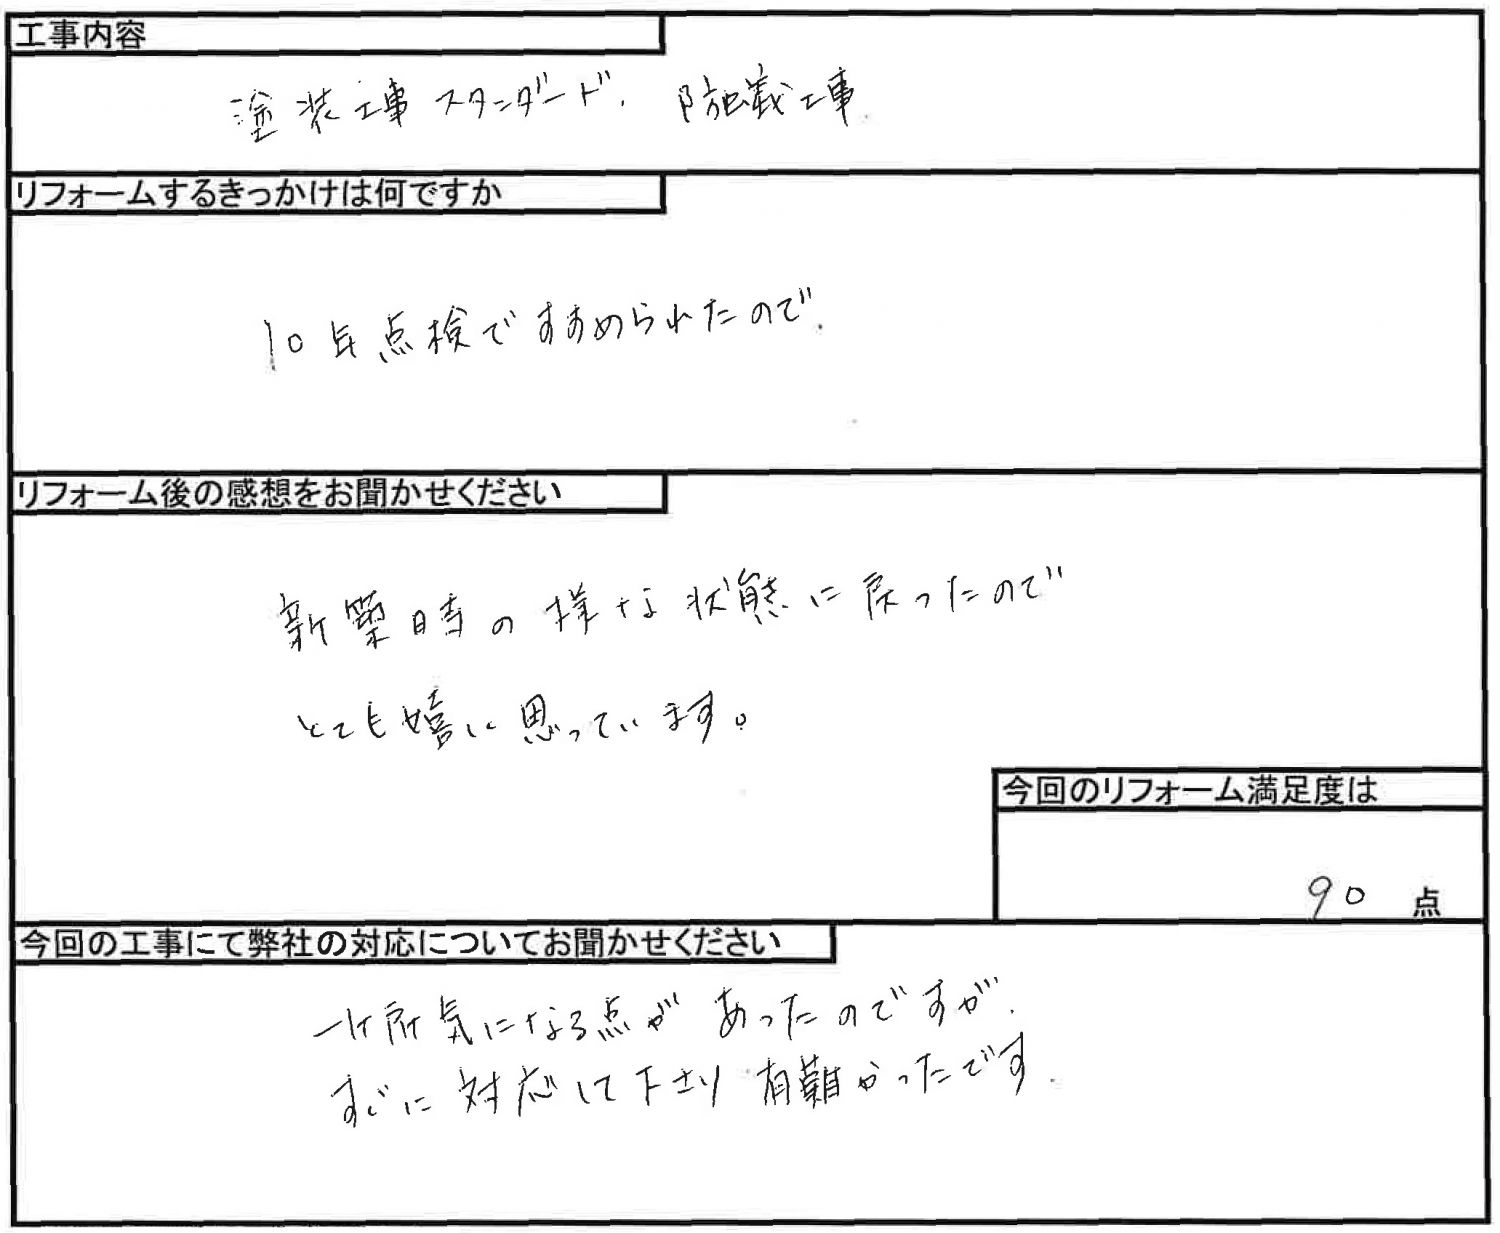 工事内容
塗装工事スタンダード. 防蟻工事.
リフォームするきっかけは何ですか
10年点検ですすめられたので.
リフォーム後の感想をお聞かせください
新築時の様な状態に戻ったので
とても嬉しく思っています。
今回のリフォーム満足度は
90 点
今回の工事にて弊社の対応についてお聞かせください
一ヶ所気になる点があったのですが.
すぐに対応して下さり有難かったです.